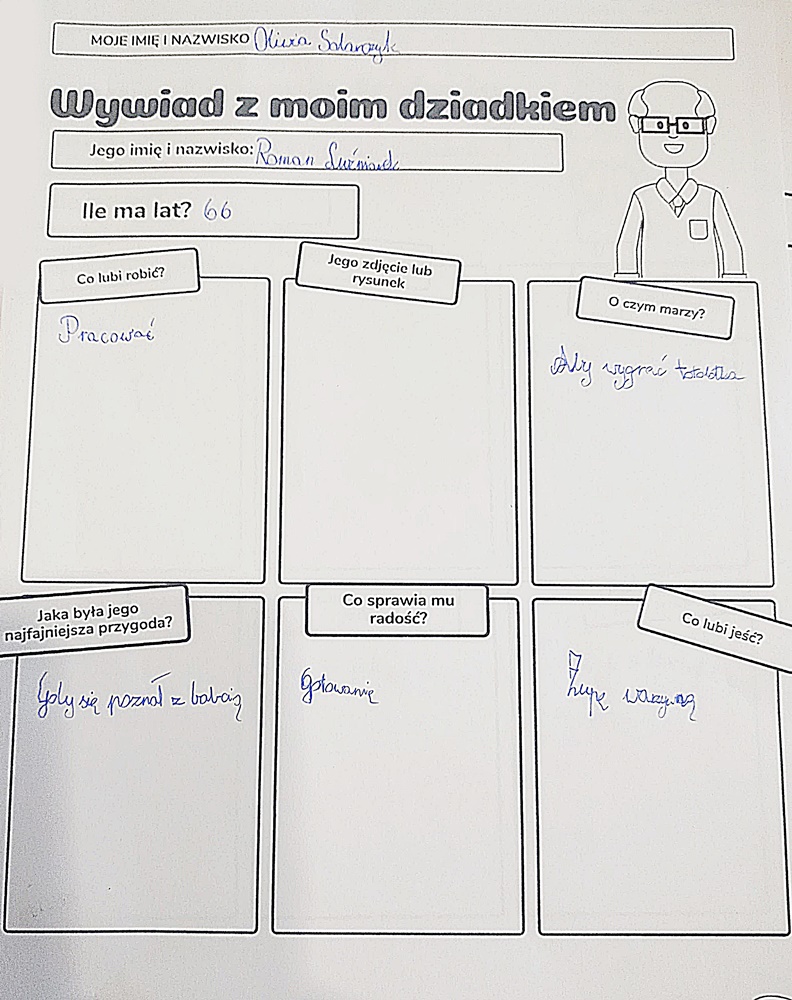 MOJE IMIĘ I NAZWISKO Oliwia
Wywiad z moim dziadkiem
Jego imię i nazwisko: Roman
Ile ma lat? 66
Co lubi robić?
Pracować
Jego zdjęcie lub
rysunek
O czym marzy?
Aby wygrać totolotka
Jaka była jego
najfajniejsza przygoda?
Gdy się poznał z babcią
Co sprawia mu
radość?
Gotowanie
Co lubi jeść?
Zupę warzywną